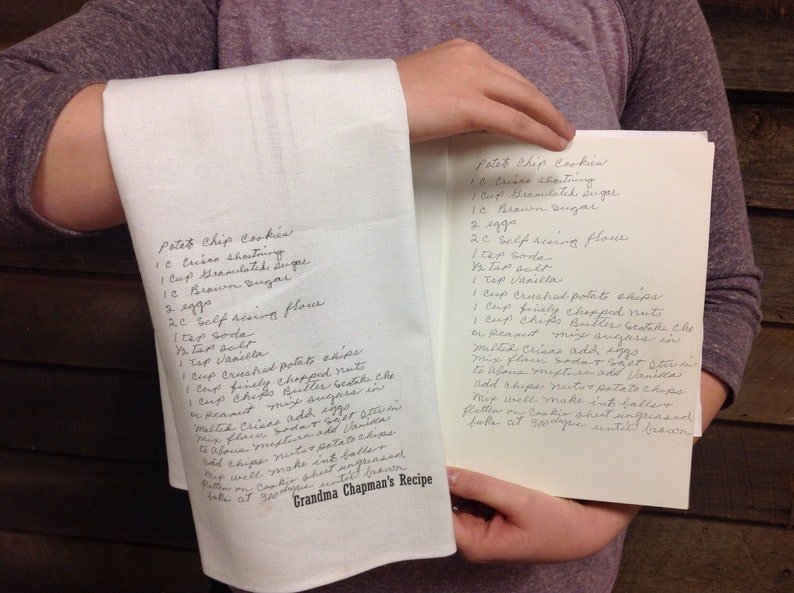 Potato Chip Cookies
1 c Crisco Shortning
1 cup Granulated Sugar
1 c Brown Sugar
2 eggs
2 c Self rising flour
1 tsp Soda
1/2 tsp Salt
1 tsp Vanilla
1 cup crushed potato chips
1 cup finely chopped nuts
1 cup Chips Butter Scotch Cho
or Peanut mix Sugars in
melted Crisco add eggs
mix flour Soda & Salt Stir in
to Above mixture add Vanilla
add chips nuts & potato chips
mix well make int balls &
flatten on Cookie sheet ungreased
bake at 300 degree until brown
Grandma Chapman's Recipe
Potato Chip Cookies
1 c Crisco Shortning
1 cup Granulated Sugar
1 c Brown Sugar
2 eggs
2 c Self rising flour
1 tsp Soda
1/2 tsp Salt
1 tsp Vanilla
1 cup crushed potato chips
1 cup finely chopped nuts
1 cup Chips Butter Scotch Cho
or Peanut mix Sugars in
melted Crisco add eggs
mix flour Soda & Salt Stir in
to Above mixture add Vanilla
add chips nuts & potato chips
mix well make int balls &
flatten on Cookie sheet ungreased
bake at 300 degree until brown